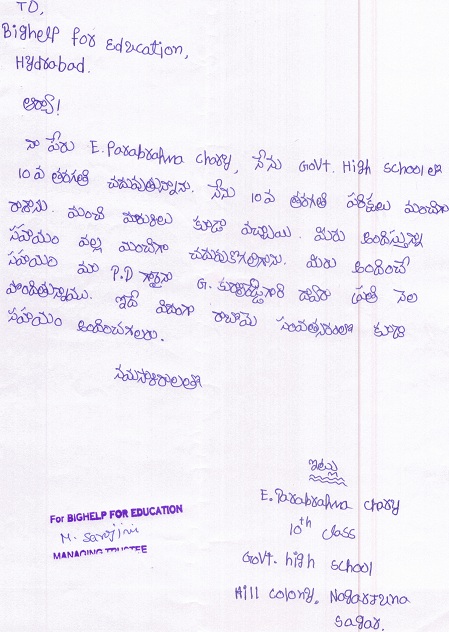 TO,
Bighelp for Education,
Hydrabad.
ఆర్యా!
నా పేరు E. Parabrahma chary, నేను Govt. High school లో
10 వ తరగతి చదువుతున్నాను. నేను 10 వ తరగతి పరిక్షలు మంచిగా
రాశాను. మంచి మార్కులు కూడా వచ్చాయి. మిరు అందిస్తున్న
సహాయం వల్ల మంచిగా చదువుకోగలిగాను. మిరు అందించే
సహాయం మా P.D గారైన G. గారి ద్వారా ప్రతి నెల
పొందుతున్నాము. ఇదే విదంగా రాబోయె సంవత్సరంలో కూడా
సహాయం అందించగలరు.
నమస్కారాలతో
ఇట్లు
E. Parabrahma chary
10th class
Govt. high school
Hill colony, Nagarjuna
Sagar.
For BIGHELP FOR EDUCATION
M. Sarojini
MANAGING TRUSTEE